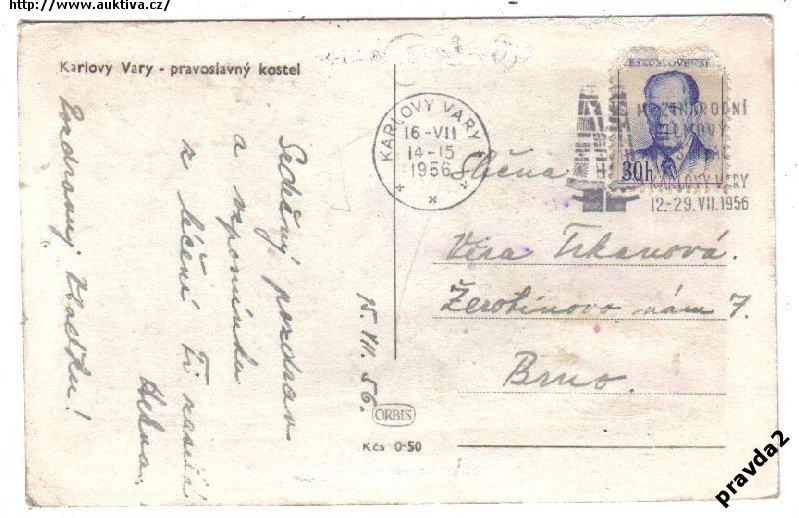 http://www.auktiva.cz/
Karlovy Vary - pravoslavný kostel
Srdečný pozdrav
a vzpomínku
z léčení Ti zasílá
Helena.
Pozdravuj Vlaďku!
15. VII. 56.
KARLOVY VARY
16-VII
14-15
1956
ČESKOSLOVENSKO
30h
MEZINÁRODNÍ
FILMOVÝ
KARLOVY VARY
12.-29.VII.1956
Slečna
Věra Trkanová.
Žerotínovo nám 7.
Brno.
ORBIS
Kčs 0·50
pravda2